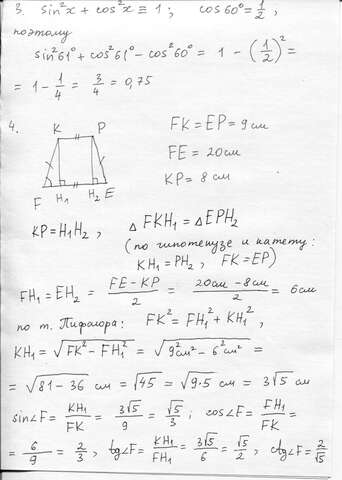 3. sin²x + cos²x ≡ 1 ; cos60° = 1/2 ,
поэтому
sin²61° + cos²61° − cos²60° = 1 − (1/2)² =
= 1 − 1/4 = 3/4 = 0,75
4.
K P
F H₁ H₂ E
FK = EP = 9 см
FE = 20 см
KP = 8 см
KP = H₁H₂ , △FKH₁ = △EPH₂
(по гипотенузе и катету:
KH₁ = PH₂ , FK = EP)
FH₁ = EH₂ = (FE − KP)/2 = (20см − 8см)/2 = 6см
по т. Пифагора: FK² = FH₁² + KH₁² ,
KH₁ = √(FK² − FH₁²) = √(9²см² − 6²см²) =
= √(81 − 36) см = √45 = √(9·5) см = 3√5 см
sin∠F = KH₁/FK = 3√5/9 = √5/3 ; cos∠F = FH₁/FK =
= 6/9 = 2/3 , tg∠F = KH₁/FH₁ = 3√5/6 = √5/2 , ctg∠F = 2/√5